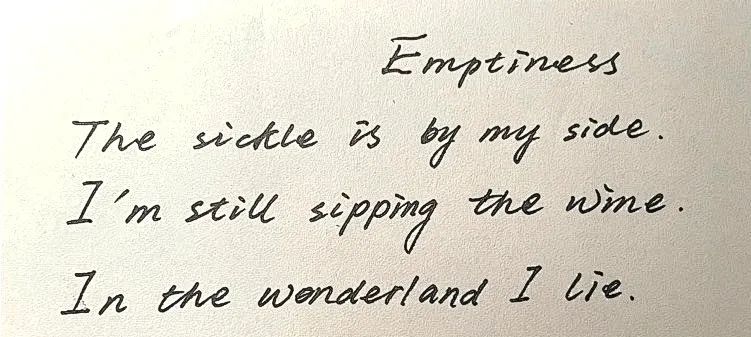 Emptiness
The sickle is by my side.
I'm still sipping the wine.
In the wonderland I lie.